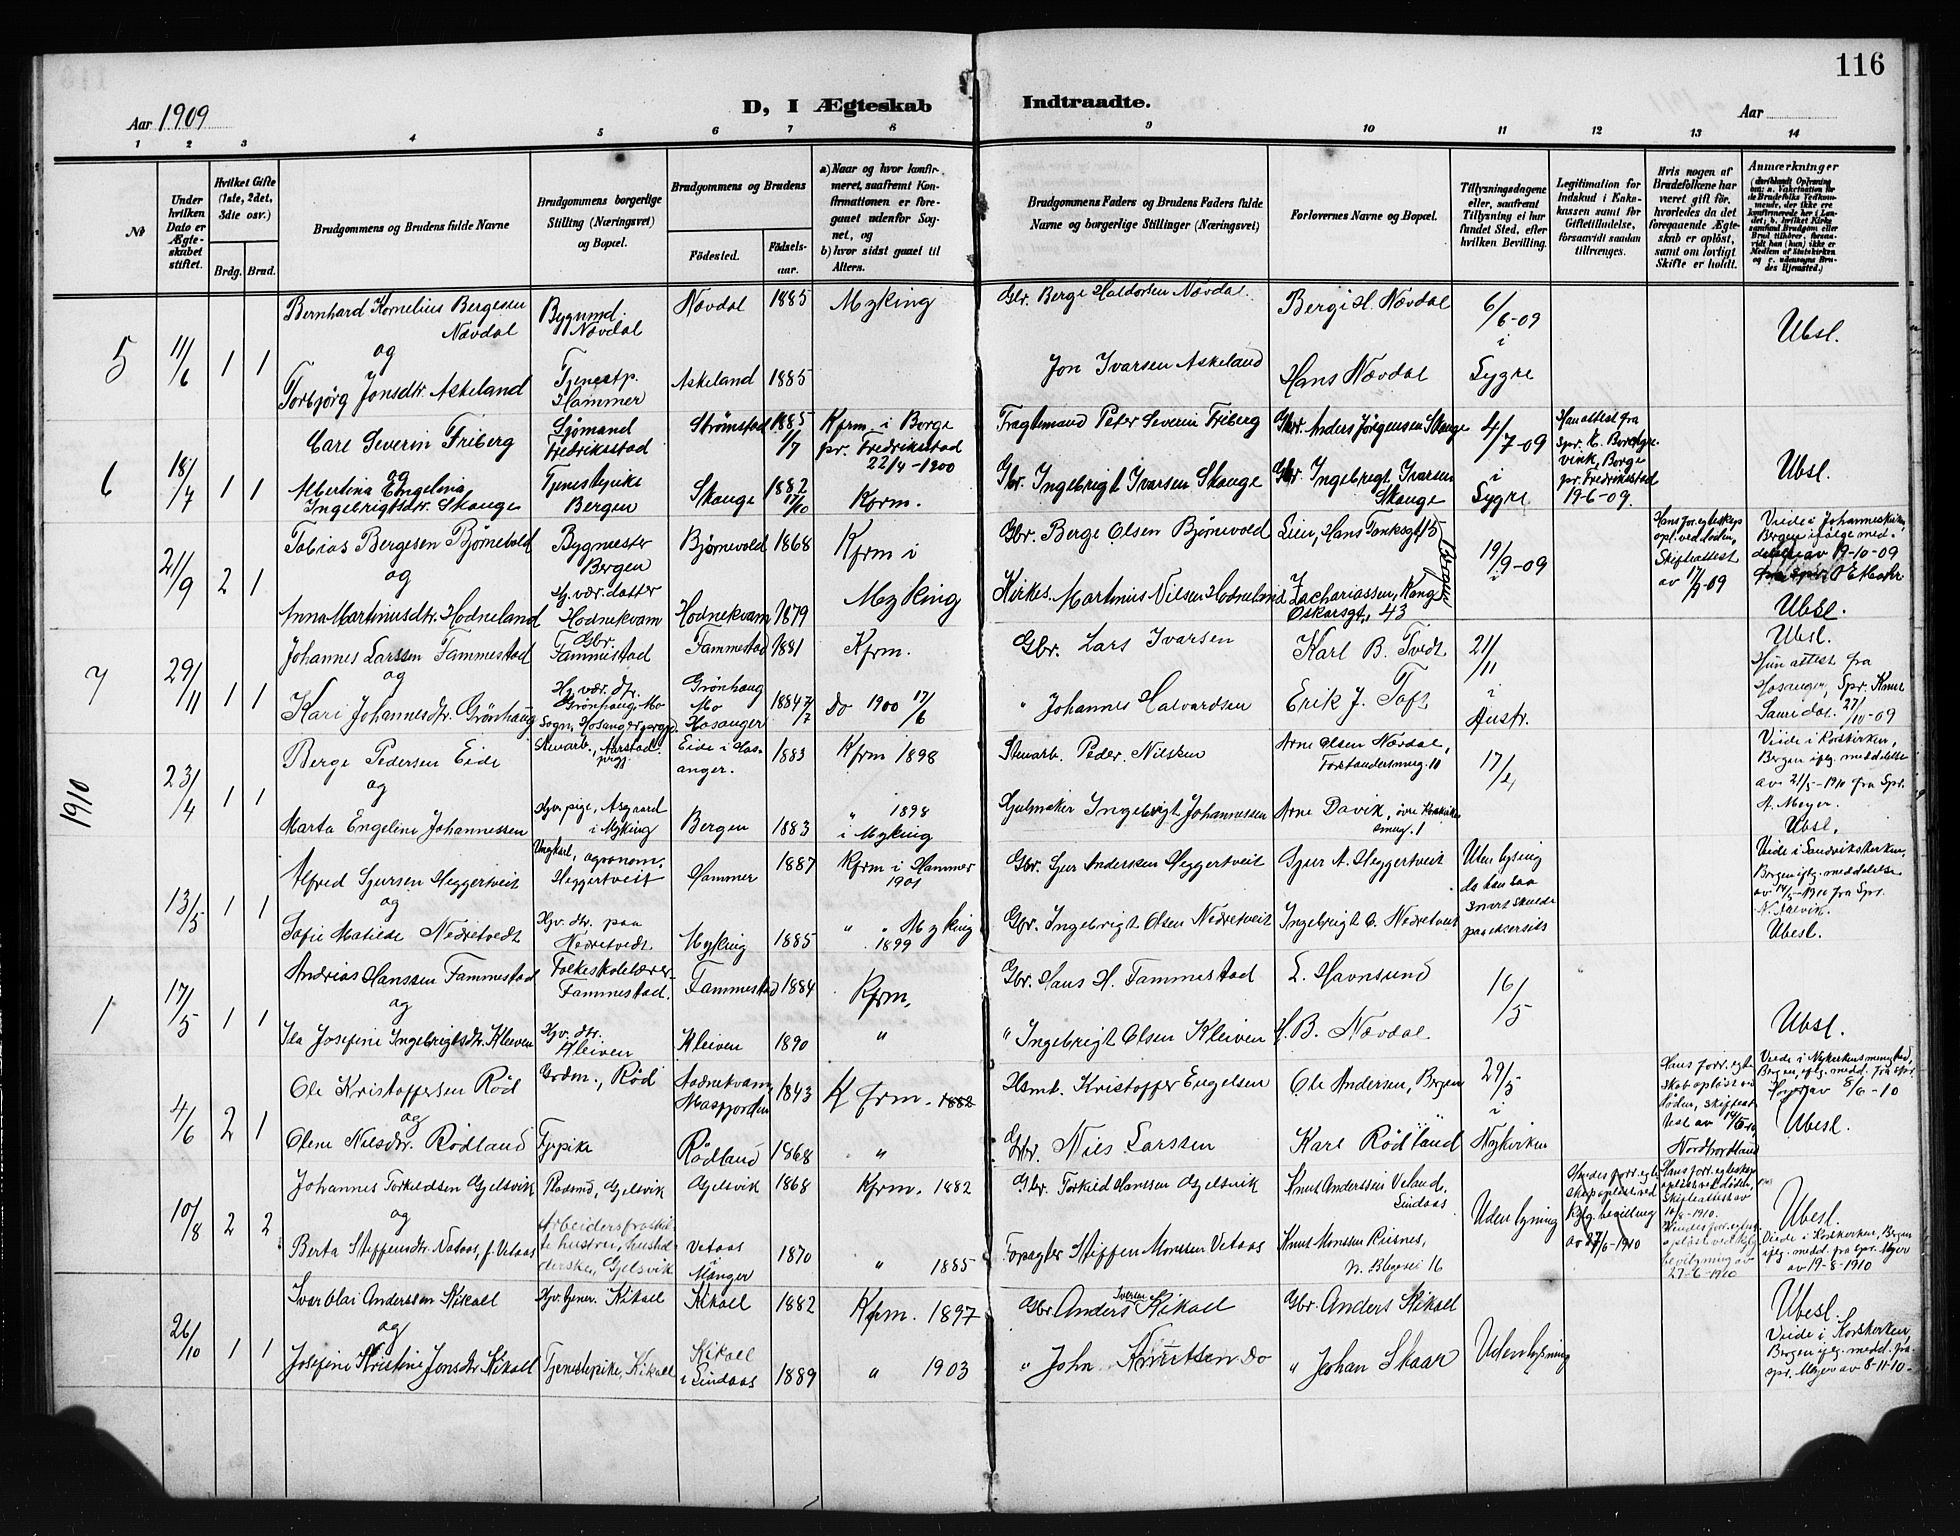 116
D, I Ægteskab Indtraadte.
Aar 1909
Aar
1 2 3 4 5 6 7 8 9 10 11 12 13 14
No
Under hvilken Dato er Ægteskabet stiftet.
Hvilket Gifte (1ste, 2det, 3die osv.)
Brdg. Brud.
Brudgommens og Brudens fulde Navne
Brudgommens borgerlige Stilling (Næringsvei) og Bopæl.
Brudgommens og Brudens
Fødested. Fødselsaar.
a) Naar og hvor konfirmeret, saafremt Konfirmationen er foregaaet udenfor Sognet, og
b) hvor sidst gaaet til Alters.
Brudgommens Faders og Brudens Faders fulde Navne og borgerlige Stillinger (Næringsvei)
Forlovernes Navne og Bopæl.
Tillysningsdagene eller, saafremt Tillysning ei har fundet Sted, efter hvilken Bevilling.
Legitimation for Indskud i Enkekassen samt for Giftetilladelse, forsaavidt saadan tiltrænges.
Hvis nogen af Brudefolkene har været gift før, hvorledes da det foregaaende Ægteskab er opløst, samt om lovligt Skifte er holdt.
Anmærkninger
5 11/6 1 1
Bernhard Kornelius Bergesen Nævdal
og
Torbjørg Jonsdtr. Askeland
Bygnmd. Nævdal
Tjenestp. Hammer
Nævdal 1885 Myking
Askeland 1885
Gbr. Berge Haldorsen Nævdal
Jon Ivarsen Askeland
Berge H. Nævdal
Hans Nævdal
6/6-09 i Sygre
Ubsl.
6 18/7 1 1
Carl Severin Friberg
og
Albertina Engelina Ingebrigtsdtr. Skauge
Sjømand Fredriksstad
Tjenestepike Bergen
Strømstad 1885 1/7
Skauge 1882 17/10
Kfrm. i Borge pr. Fredriksstad 22/4-1900
Kfrm.
Fragtemand Peter Severin Friberg
Gbr. Ingebrigt Ivarsen Skauge
Gbr. Anders Jørgensen Skauge
Gbr. Ingebrigt Ivarsen Skauge
4/7-09 i Sygre
Han attest fra Spr. Borge pr. Fredriksstad 19-6-09.
Ubsl.
21/9 2 1
Tobias Bergesen Bjørnevold
og
Anna Martinusdtr. Hodneland
Bygmester Bergen
Hj. vær. datter Hodnekvam
Bjørnevold 1868
Hodnekvam 1879
Kfrm i Myking
Gbr. Berge Olsen Bjørnevold
Kirkes. Martinus Nilsen Hodneland
Lien, Hans Tanksgt 15
Zachariassen, Kong Oskarsgt. 43
Bergen
19/9-09
Hans for. egteskap opl. ved døden, Skifteattest av 17/9-09
Viede i Johanneskirken, Bergen ifølge meddelelse av 19-10-09
Ubsl.
7 29/11 1 1
Johannes Larssen Fammestad
og
Kari Johannesdtr. Grønhaug
Gbr. Fammestad
Hj. vær. dtr. Grønhaug, Mo Sogn, Hosanger prgj.
Fammestad 1881 Kfrm.
Grønhaug Mo Hosanger 1884 7/7
do 1900 17/6
Gbr. Lars Ivarsen
" Johannes Halvardsen
Karl B. Tvedt
Erik J. Toft
21/11 i Austr.
Ubsl.
Hun attest fra Hosanger, Spr. Knut Sauridal 27/10-09
1910
23/4 1 1
Berge Pedersen Eide
og
Marta Engeline Johannessen
Stenarb., Aarstad prgj.
Hjv. pige, Asgaard i Myking
Eide i Hosanger. 1883 Kfrm 1898
Bergen 1883 " 1898 i Myking
Stenarb. Peder Nilsen
Gjelmaker Ingebrigt Johannessen
Arne Olsen Nævdal, Forstandersmug. 10
Arne Davik, øvre smug. 1
17/4
Viede i Korskirken, Bergen iflg. meddelelse av 21/5-1910 fra Spr. A. Meyer.
Ubsl.
13/5 1 1
Alfred Sjursen Heggertveit
og
Sofie Matilde Nedretvedt
Ungkarl, agronom. Heggertveit
Hjv. dtr. paa Nedretvedt
Hammer 1887 Kfrm i Hammer 1901
Myking 1885 " " Myking 1899
Gbr. Sjur Andersen Heggertveit
Gbr. Ingebrigt Olsen Nedretveit
Sjur A. Heggertveit
Ingebrigt O. Nedretveit
Uten lysing da han saa snart skulde paa ekcersis
Viede i Sandvikskirken, Bergen iflg. meddelelse av 14/5-1910 fra Spr. N. Dalvik.
Ubesl.
1 17/5 1 1
Andrias Hanssen Fammestad
og
Ida Josefine Ingebrigtsdtr. Kleiven
Folkeskolelærer Fammestad.
Hjv. dtr. Kleiven
Fammestad 1884 Kfrm.
Kleiven 1890 "
Gbr. Hans H. Fammestad
" Ingebrigt Olsen Kleiven
L. Havnsund
H. B. Nævdal
16/5
Ubsl.
4/6 2 1
Ole Kristoffersen Rød
og
Olene Nilsdtr. Rødland
Grdm., Rød
Tjrpike
Hodnekvam Masfjorden 1843 Kfrm. 1882
Rødland 1868 "
Hsmd. Kristoffer Engelsen
Gbr. Niels Larssen
Ole Andersen, Bergen
Karl Rødland "
29/5 i Nykirken
Hans forr. egteskab opløst ved døden, skifteattest av 14/5-10, Nordhordland
Viede i Nykirkens menighed, Bergen, iflg. medd. fra spr. av 8/6-10
Ubesl.
10/8 2 2
Johannes Torkildsen Gjelsvik
og
Berta Steffensdtr. Nataas, f. Vetaas
Pladsmd, Gjelsvik
Arbeiders fraskilte hustru, husholderske, Gjelsvik
Gjelsvik 1868 Kfrm. 1882
Vetaas Manger 1870 " 1885
Gbr. Torkild Hanssen Gjelsvik
Forpagter Steffen Monssen Vetaas
Knut Anderssen Veland, Lindaas
Knut Monssen Risnes, n. Blegevei 16
Uden lysning
Hendes forr. egteskap opløst ved Kglg. bevillning av 27/6-1910
Hans forr. egteskap opløst ved døden, Skifteattest av 10/8-1910.
Hendes forr. egtesk. opløst ved kglg. bevilgning av 27-6-1910
Ubesl.
Viede i Korskirken, Bergen iflg. medd. fra spr. Meyer av 19-8-1910
26/10 1 1
Ivar Olai Anderssen Kikall
og
Josefine Kristine Jonsdtr Kikall
Hjv. tjener. Kikall
Tjenestepike, Kikall
Kikall 1882 Kfrm. 1897
Kikall i Lindaas 1889 " 1903
Gbr. Anders Iversen Kikall
" John Knutsen do
Gbr. Anders Kikall
" Johan Skaar
Uden lysning
Ubesl.
Viede i Korskirken, Bergen iflg. medd. fra spr. Meyer av 8-11-10